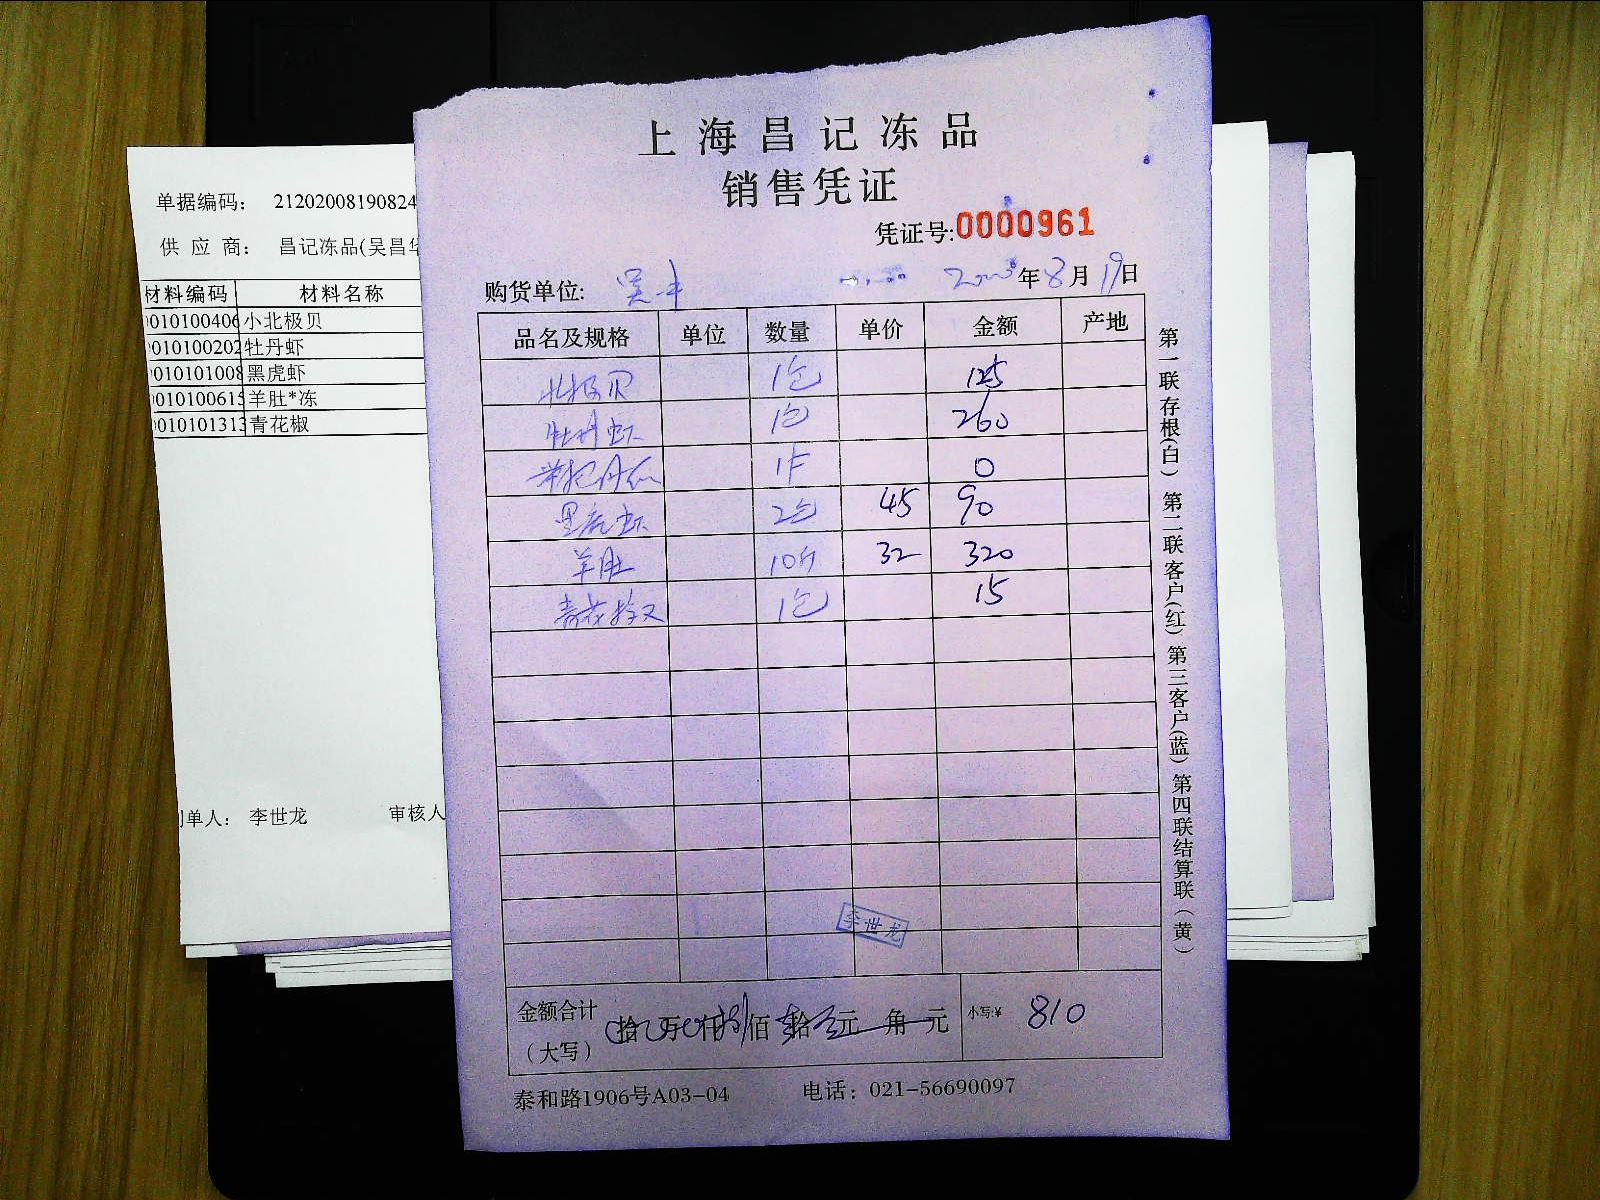 上海昌记冻品
销售凭证
凭证号:0000961
购货单位: 年8月19日
品名及规格 单位 数量 单价 金额 产地
北极贝 1包 125
牡丹虾 1包 260
1斤 0
黑虎虾 2包 45 90
羊肚 10斤 32 320
青花椒 1包 15
李世龙
金额合计
(大写)
拾 万 仟 捌 佰 拾 元 角 元
小写:¥ 810
泰和路1906号A03-04 电话: 021-56690097
第一联存根(白) 第二联客户(红) 第三客户(蓝) 第四联结算联(黄)
单据编码: 21202008190824
供应商: 昌记冻品(吴昌华
材料编码 材料名称
010100406 小北极贝
010100202 牡丹虾
010101008 黑虎虾
010100615 羊肚*冻
010101313 青花椒
制单人: 李世龙 审核人